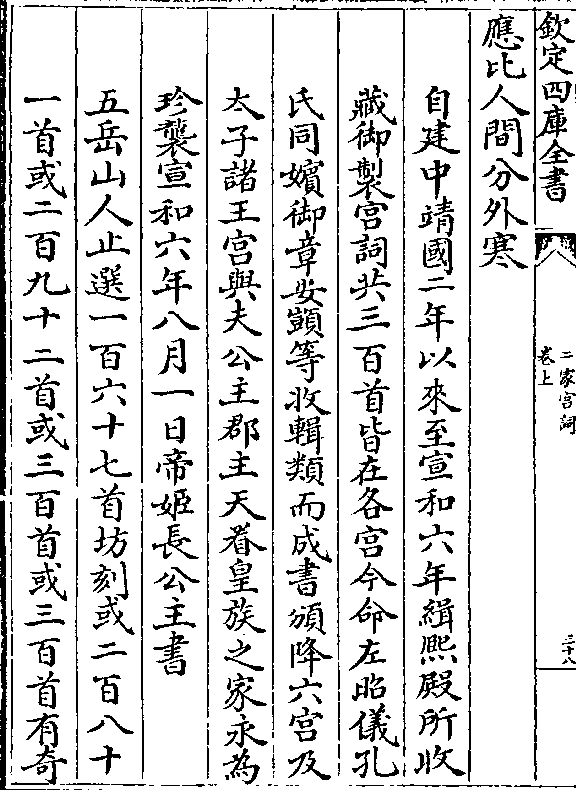 欽定四庫全書
二家宮詞
卷上
三十八
應比人間分外寒
自建中靖國二年以來至宣和六年緝熙殿所收
藏御製宮詞共三百首皆在各宮今命左昭儀孔
氏同嬪御章安顗等收輯類而成書頒降六宮及
太子諸王宮與夫公主郡主天眷皇族之家永為
珍襲宣和六年八月一日帝姬長公主書
五岳山人止選一百六十七首坊刻或二百八十
一首或二百九十二首或三百首或三百首有奇